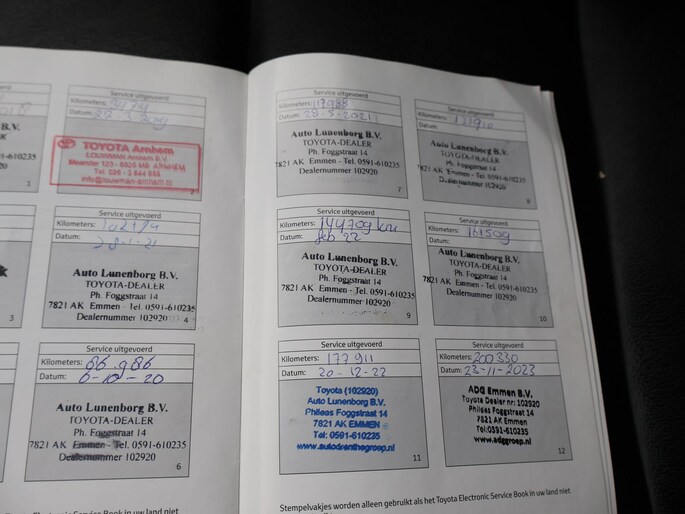 B.V.
1
Service uitgevoerd
Kilometers:
Datum:
TOYOTA Arnhem
LOUWMAN Arnhem B.V.
Meander 123 - 6825 MB ARNHEM
Tel. 026 - 3 644 655
info@louwman-arnhem.nl
3
Service uitgevoerd
Kilometers:
Datum: 28-1-21
Auto Lunenborg B.V.
TOYOTA-DEALER
Ph. Foggstraat 14
7821 AK Emmen - Tel. 0591-610235
Dealernummer 102920
4
Service uitgevoerd
Kilometers: 86.986
Datum: 6-10-20
Auto Lunenborg B.V.
TOYOTA-DEALER
Ph. Foggstraat 14
7821 AK Emmen - Tel. 0591-610235
Dealernummer 102920
6
Service uitgevoerd
Kilometers: 117988
Datum: 28-5-2021
Auto Lunenborg B.V.
TOYOTA-DEALER
Ph. Foggstraat 14
7821 AK Emmen - Tel. 0591-610235
Dealernummer 102920
7
Service uitgevoerd
Kilometers:
Datum:
Auto Lunenborg B.V.
TOYOTA-DEALER
Ph. Foggstraat 14
7821 AK Emmen - Tel. 0591-610235
Dealernummer 102920
8
Service uitgevoerd
Kilometers: 144709 km
Datum: feb 22
Auto Lunenborg B.V.
TOYOTA-DEALER
Ph. Foggstraat 14
7821 AK Emmen - Tel. 0591-610235
Dealernummer 102920
9
Service uitgevoerd
Kilometers: 161509
Datum:
Auto Lunenborg B.V.
TOYOTA-DEALER
Ph. Foggstraat 14
7821 AK Emmen - Tel. 0591-610235
Dealernummer 102920
10
Service uitgevoerd
Kilometers: 177911
Datum: 20-12-22
Toyota (102920)
Auto Lunenborg B.V.
Phileas Foggstraat 14
7821 AK EMMEN
Tel: 0591-610235
www.autodrenthegroep.nl
11
Service uitgevoerd
Kilometers: 200330
Datum: 23-11-2023
ADG Emmen B.V.
Toyota Dealer nr: 102920
Phileas Foggstraat 14
7821 AK EMMEN
Tel:0591-610235
www.adggroep.nl
12
Electronic Service Book in uw land niet
Stempelvakjes worden alleen gebruikt als het Toyota Electronic Service Book in uw land niet